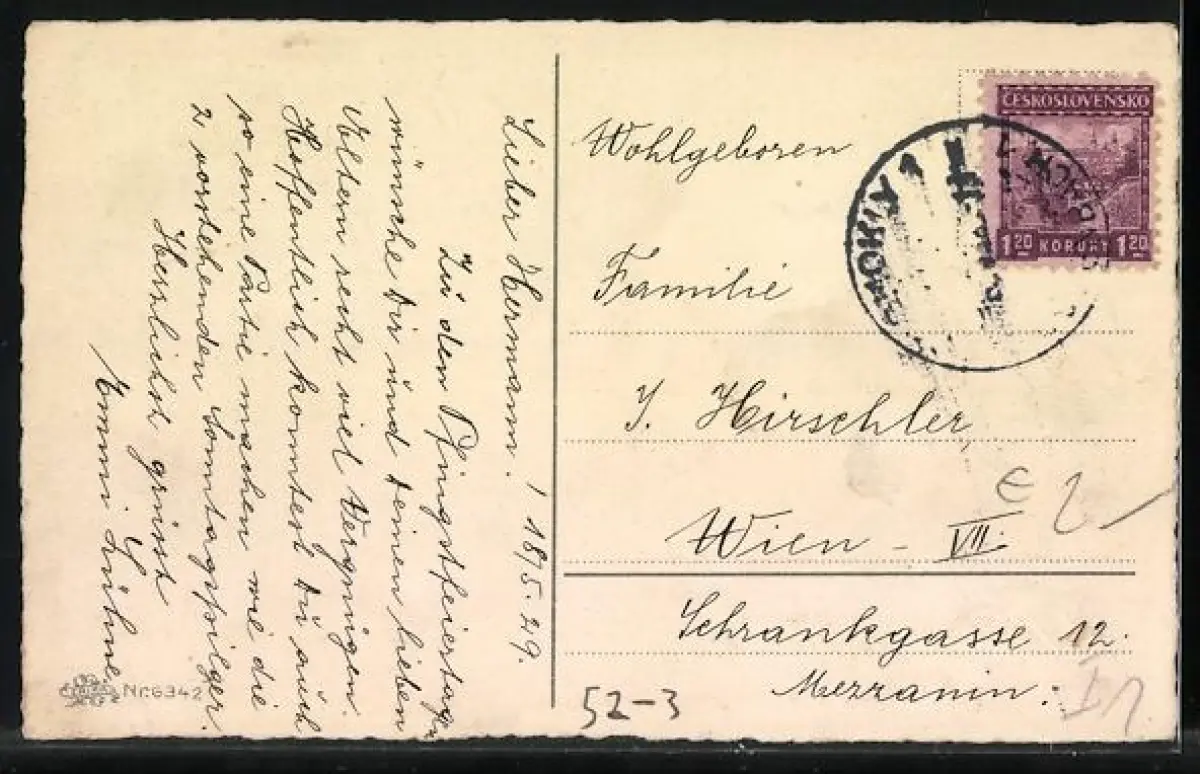 Lieber Hermann. 18/5.29.
Zu den Pfingstfeiertagen
wünsche Dir und Deinen lieben
Eltern recht viel Vergnügen.
Hoffentlich konntest Du auch
so eine Partie machen wie die
2 vorstehenden Sonntagspilger.
Herzlichst grüsst
Emmi
Nr. 6342
Wohlgeboren
Familie
J. Hirschler
Wien - VII.
Schrankgasse 12.
Mezzanin.
52-3
ČESKOSLOVENSKO
1 20 KORUNY 1 20